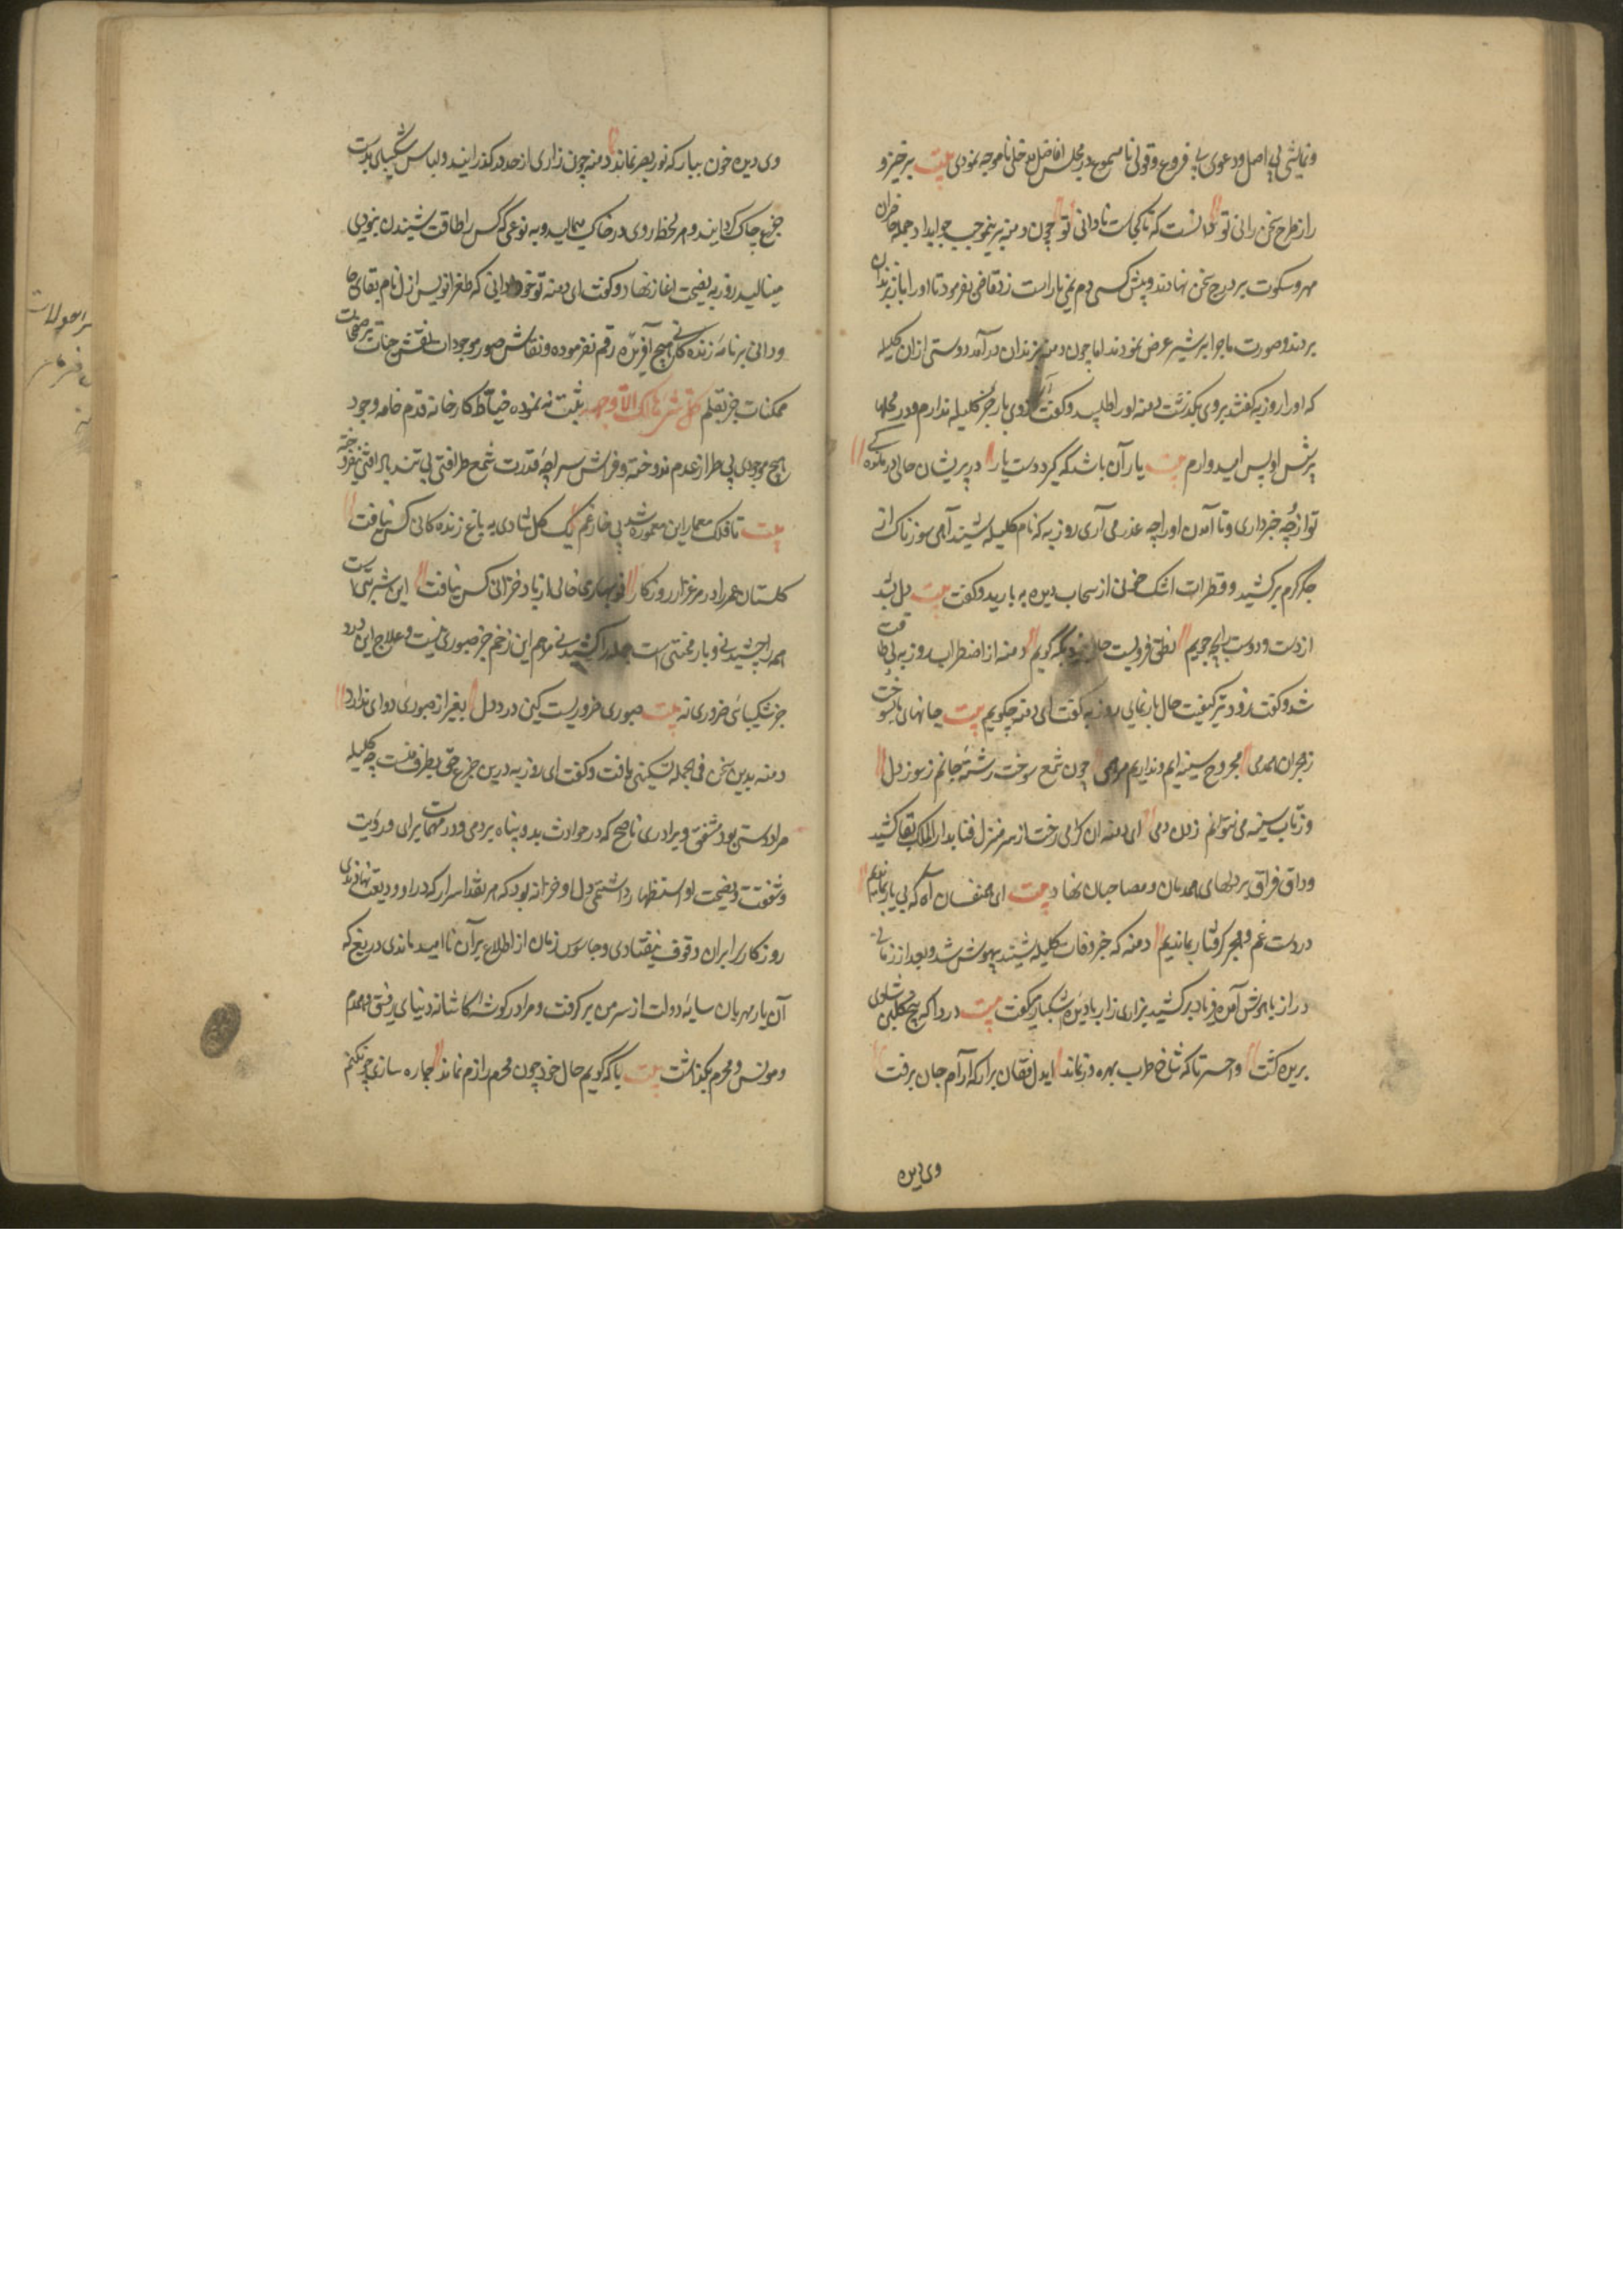 و نمایشی بی اصل و دعوی بی فروغ و قولی نا مسموع در مجلس افاضل مدخلی نا موجه نمودی بیت برخیز و
را ز طرح سخن رانی تو دانست که تا کجاست نادانی تو چون دمنه برینموجب جواب داد جمله حاضران
مهر سکوت بر درج سخن نهادند و پیش کسی دم نمی یارست زد قاضی بفرمود تا او را باز بزندان
بردند و صورت ماجرا بر شیر عرض نمودند اما چون دمنه بزندان درآمد دوستی از ان کلیله
که او را روزبه گفتند بروی بگذشت دمنه او را طلبید و گفت ای روزبه یاری جز کلیله ندارم و در محلها
پرسش او بس امیدوارم بیت یار آن باشد که گیرد دست یار در پریشان حالی و درماندگی
تو از وی چه خبر داری و تا آمدن او را چه عذر می آری روزبه که نام کلیله شنید آهی سوزناک از
جگر گرم برکشید و قطرات اشک خونی از سحاب دیده به بارید و گفت بیت دل شد
از دست و دوست را چه جویم نطقی فروبست حال خود با که گویم دمنه از اضطراب روزبه بی طاقت
شد و گفت زودتر کیفیت حال باز نمای روزبه گفت ای دمنه چگویم بیت جانهای ما بسوخت
ز هجران همدمی مجروح سینه ایم و نداریم مرهمی چون شمع سوخت رشته جانم ز سوز دل
وز تاب سینه می نتوانم زدن دمی ای دمنه ان گرامی رخت از سر منزل فنا بدار الملک بقا کشید
و داغ فراق بر دلهای همدمان و مصاحبان نهاد بیت ای همنفسان آه که بی یار بماندیم
در دست غم و هجر گرفتار بماندیم دمنه که خبر وفات کلیله شنید بیهوش شد و بعد از زمانی
دراز باهوش آمده فریاد برکشید بزاری زار با دیده اشکبار میگفت بیت دردا که بیخ گلبن شادی
بریده گشت واحسرتا که شاخ طرب بهره ور نماند ایدل فغان برآر که آرام جان برفت
وی دیده
وی دیده خون ببار که نور بصر نماند دمنه چون زاری از حد در گذرانید و لباس شکیبایی بدست
جزع چاک گردانید و هر لحظه روی در خاک میمالید و به نوعی که کس را طاقت شنیدن نبودی
مینالید روزبه نصیحت اغاز نهاد و گفت ای دمنه تو خود دانی که طغرا نویس ازل نام بقای جا
ودانی بر نامه زنده گانی هیچ آفریده رقم نفرموده و نقاش صور موجودات نقش حیات بر صفحات
ممکنات جز بقلم کل شئ هالک الا وجهه ثبت نه نموده خیاط کارخانه قدم خامه وجود
هیچ موجودی بی طراز عدم ندوخته و فراش سراچه قدرت شمع ظرافتی بی تندباد آفتی نیفروخته
بیت تا فلک معمار این معموره شد بی خار غم یک گل شادی به باغ زنده گانی کس نیافت
گلستان عمر را در مرغزار روزگار نوبهاری خالی از باد خزانی کس نیافت این شربتی است
همه را چشیدنی و بار محنتی است جمله را کشیدنی مرهم این زخم جز صبوری نیست و علاج این درد
جز شکیبائی ضروری نه بیت صبوری ضرور یست کین درد دل بغیر از صبوری دوای ندارد
دمنه بدین سخن فی الجمله تسکینی یافت و گفت ای روزبه درین جزع حق بطرف منست چه کلیله
مرا دوستی بود مشفق و برادری ناصح که در حوادث بدو پناه بردمی و در مهمات برای و رویت
و شفقت و نصیحت او استظهار داشتمی دل او خزانه بود که هر نقد اسرار که در او ودیعت نهادندی
روزگار را بران وقوف نیفتادی و جاسوس زمان از اطلاع بر آن نا امید ماندی دریغ که
آن یار مهربان سایه دولت از سر من برگرفت و مرا در گوشه کاشانه دنیا بی رفیق و همدم
و مونس و محرم بگذاشت بیت با که گویم حال خود چون محرم رازم نماند چاره سازی چون کنم